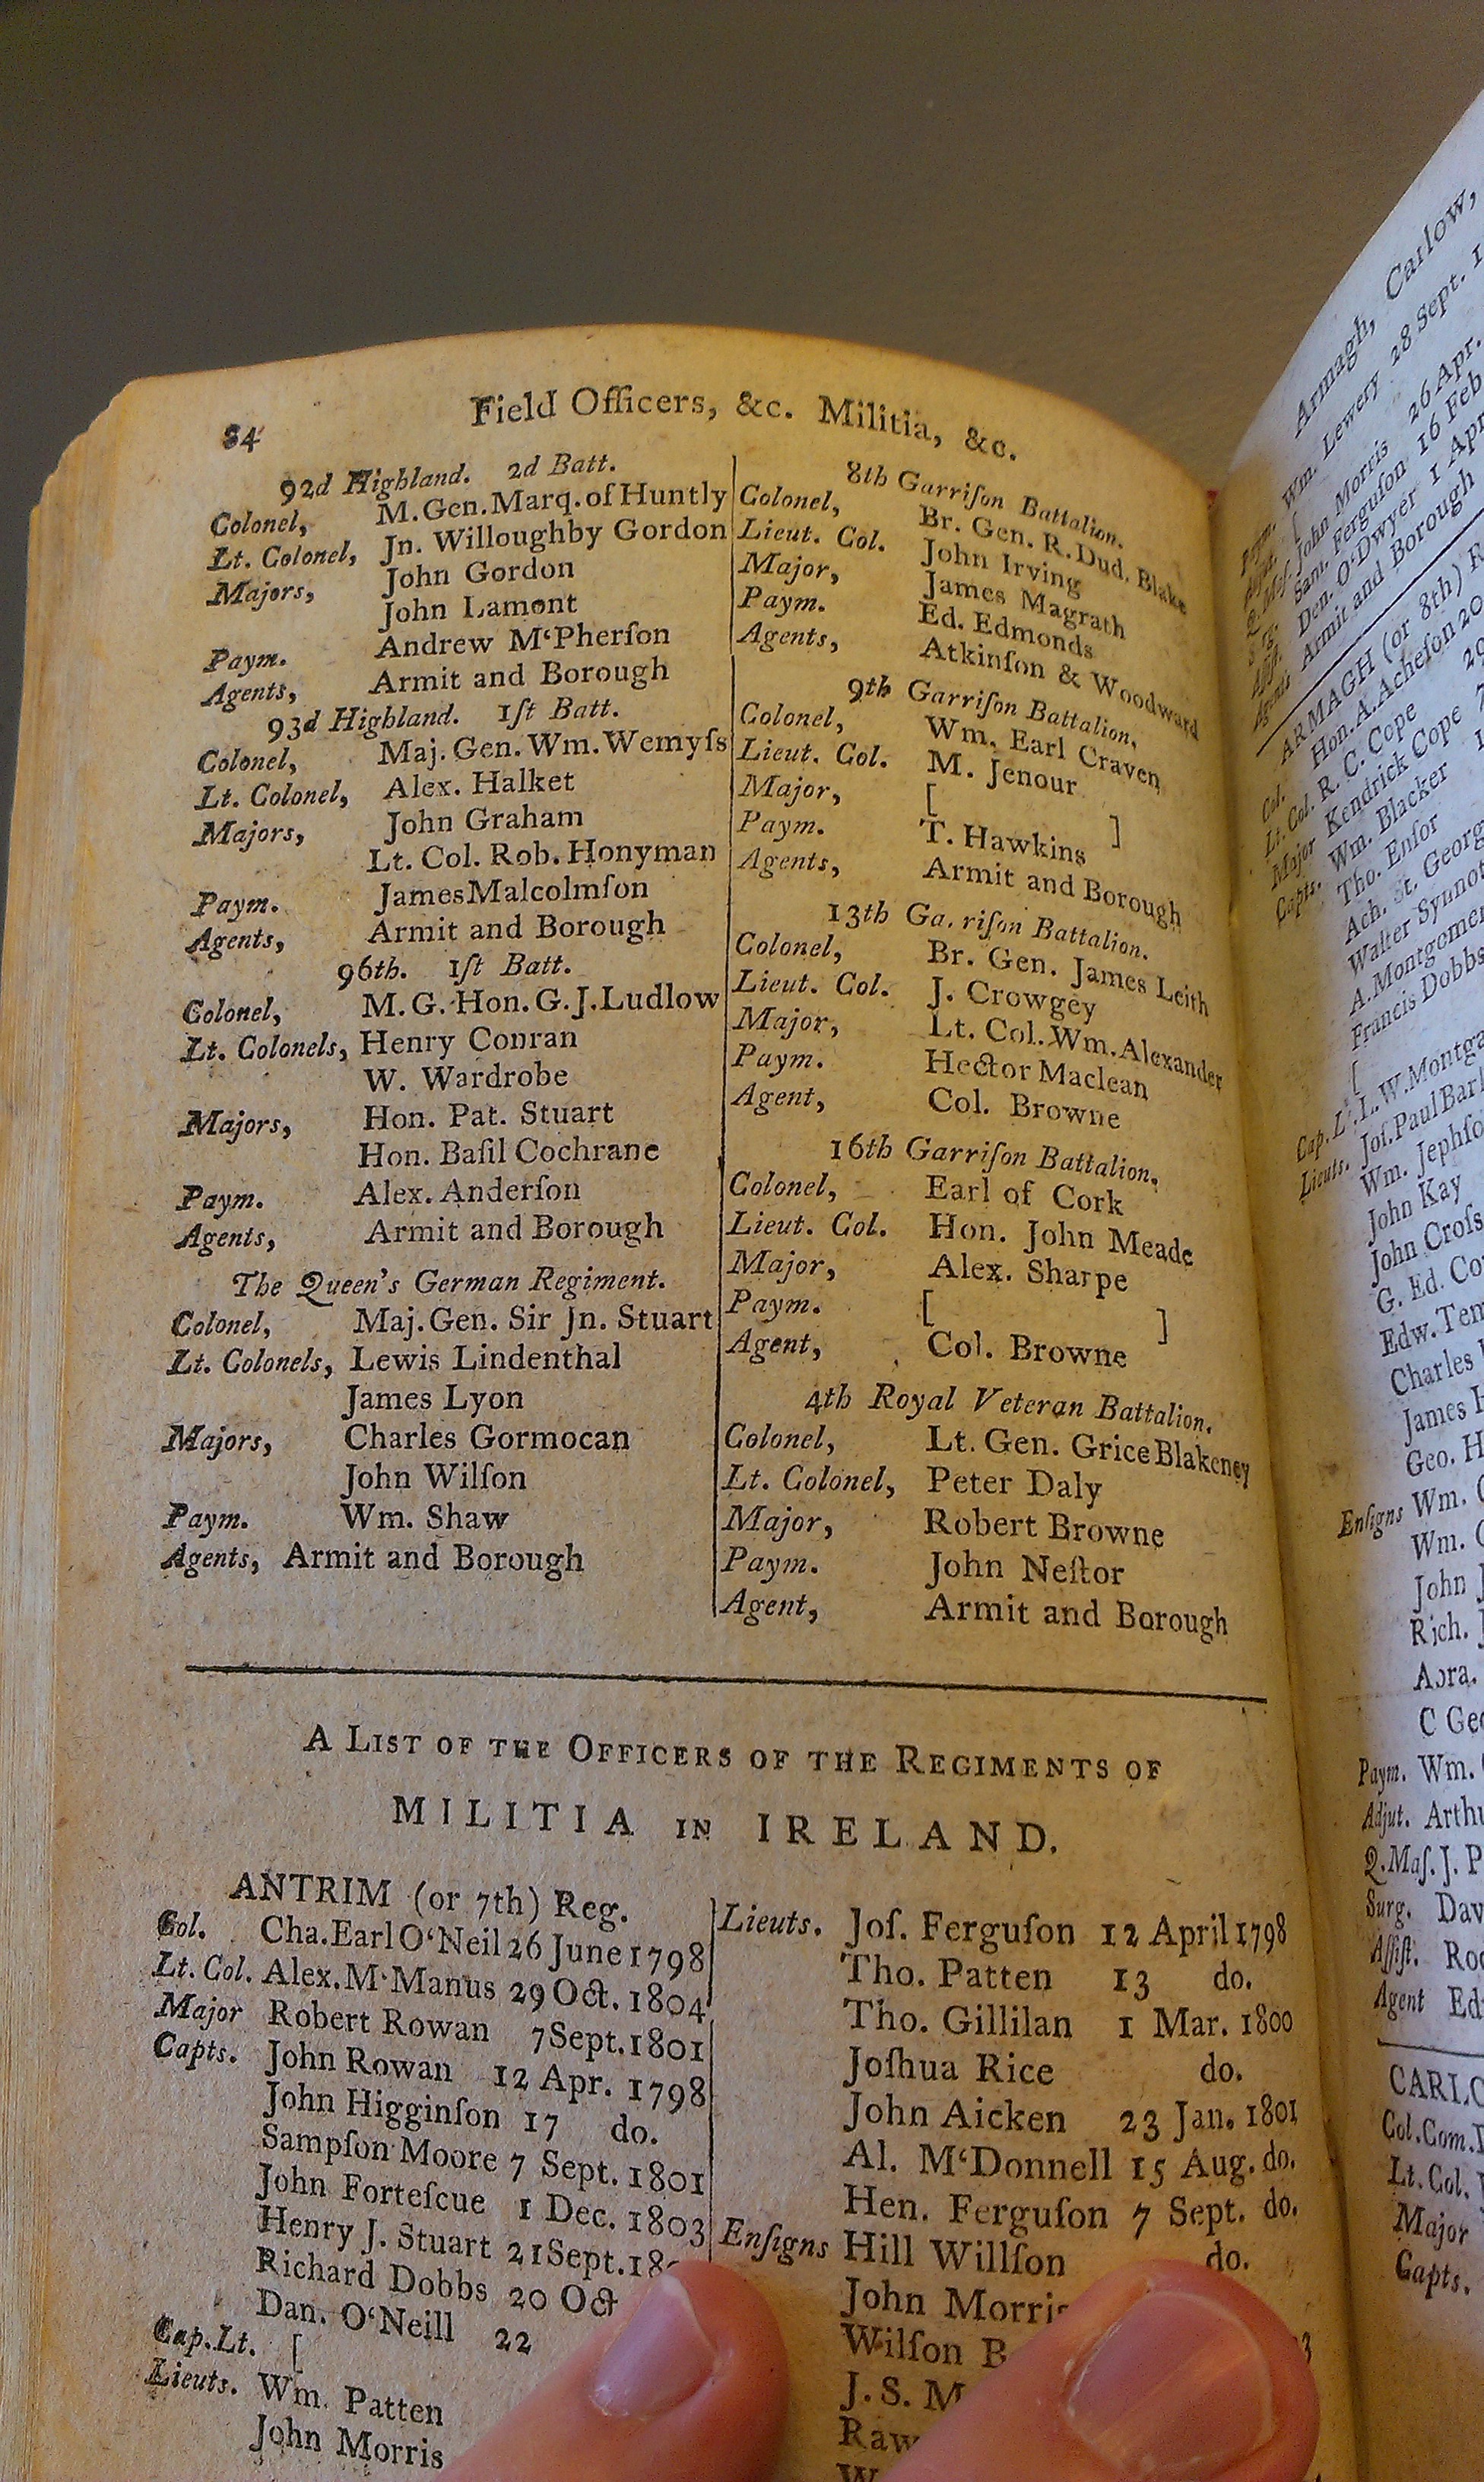 84
Field Officers, &c. Militia, &c.
92d Highland. 2d Batt.
Colonel, M. Gen. Marq. of Huntly
Lt. Colonel, Jn. Willoughby Gordon
Majors, John Gordon
John Lamont
Paym. Andrew M‘Pherſon
Agents, Armit and Borough
93d Highland. 1ſt Batt.
Colonel, Maj. Gen. Wm. Wemyſs
Lt. Colonel, Alex. Halket
Majors, John Graham
Lt. Col. Rob. Honyman
Paym. James Malcolmſon
Agents, Armit and Borough
96th. 1ſt Batt.
Colonel, M. G. Hon. G. J. Ludlow
Lt. Colonels, Henry Conran
W. Wardrobe
Majors, Hon. Pat. Stuart
Hon. Baſil Cochrane
Paym. Alex. Anderſon
Agents, Armit and Borough
The Queen's German Regiment.
Colonel, Maj. Gen. Sir Jn. Stuart
Lt. Colonels, Lewis Lindenthal
James Lyon
Majors, Charles Gormocan
John Wilſon
Paym. Wm. Shaw
Agents, Armit and Borough
8th Garriſon Battalion.
Colonel, Br. Gen. R. Dud. Blake
Lieut. Col. John Irving
Major, James Magrath
Paym. Ed. Edmonds
Agents, Atkinſon & Woodward
9th Garriſon Battalion,
Colonel, Wm. Earl Craven
Lieut. Col. M. Jenour
Major, [ ]
Paym. T. Hawkins
Agents, Armit and Borough
13th Ga. riſon Battalion.
Colonel, Br. Gen. James Leith
Lieut. Col. J. Crowgey
Major, Lt. Col. Wm. Alexander
Paym. Hector Maclean
Agent, Col. Browne
16th Garriſon Battalion.
Colonel, Earl of Cork
Lieut. Col. Hon. John Meade
Major, Alex. Sharpe
Paym. [ ]
Agent, Col. Browne
4th Royal Veteran Battalion.
Colonel, Lt. Gen. Grice Blakeney
Lt. Colonel, Peter Daly
Major, Robert Browne
Paym. John Neſtor
Agent, Armit and Borough
A LIST OF THE OFFICERS OF THE REGIMENTS OF
MILITIA IN IRELAND.
ANTRIM (or 7th) Reg.
Col. Cha. Earl O‘Neil 26 June 1798
Lt. Col. Alex. M‘Manus 29 Oct. 1804
Major Robert Rowan 7 Sept. 1801
Capts. John Rowan 12 Apr. 1798
John Higginſon 17 do.
Sampſon Moore 7 Sept. 1801
John Forteſcue 1 Dec. 1803
Henry J. Stuart 21 Sept.
Richard Dobbs 20 Oct
Dan. O‘Neill 22
Cap. Lt. [
Lieuts. Wm. Patten
John Morris
Lieuts. Joſ. Ferguſon 12 April 1798
Tho. Patten 13 do.
Tho. Gillilan 1 Mar. 1800
Joſhua Rice do.
John Aicken 23 Jan. 1801
Al. M‘Donnell 15 Aug. do.
Hen. Ferguſon 7 Sept. do.
Enſigns Hill Willſon do.
John Morris
Wilſon B
J. S. M
Raw
Armagh, Carlow,
Paym. Wm. Lewery 28 Sept. 1
Adjut. [
Q. Maſ. John Morris 26 Apr.
Surg. Sam. Ferguſon 16 Feb
Aſſiſt. Den. O‘Dwyer 1 Apr
Agents Armit and Borough
ARMAGH (or 8th) R
Col. Hon. A. Acheſon 20
Lt. Col. R. C. Cope 20
Major Kendrick Cope 7
Capts. Wm. Blacker 1
Tho. Enſor
Ach. St. Georg
Walter Synnot
A. Montgomer
Francis Dobbs
[
Cap. Lt. L. W. Montga
Lieuts. Joſ. Paul Barl
Wm. Jephſo
John Kay
John Croſs
G. Ed. Co
Edw. Tem
Charles
James
Geo. H
Enſigns Wm.
Wm.
John
Rich.
Abra.
C Geo
Paym. Wm.
Adjut. Arthu
Q. Maſ. J. P
Surg. Dav
Aſſiſt. Ro
Agent Ed
CARLO
Col. Com.
Lt. Col.
Major
Capts.